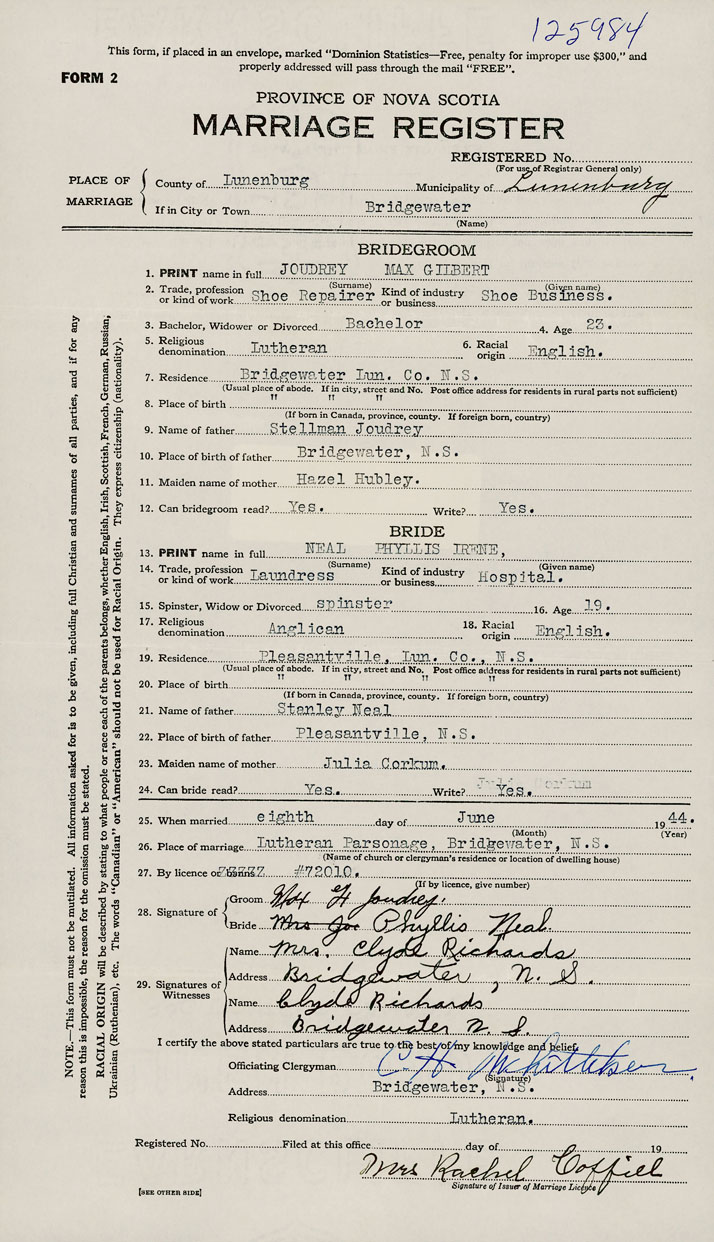 125984
This form, if placed in an envelope, marked "Dominion Statistics—Free, penalty for improper use $300," and
properly addressed will pass through the mail "FREE".
FORM 2
PROVINCE OF NOVA SCOTIA
MARRIAGE REGISTER
REGISTERED No.
(For use of Registrar General only)
PLACE OF MARRIAGE
County of Lunenburg Municipality of Lunenburg
If in City or Town Bridgewater
(Name)
BRIDEGROOM
1. PRINT name in full JOUDREY MAX GILBERT
(Surname) (Given name)
2. Trade, profession or kind of work Shoe Repairer Kind of industry or business Shoe Business.
3. Bachelor, Widower or Divorced Bachelor 4. Age 23.
5. Religious denomination Lutheran 6. Racial origin English.
7. Residence Bridgewater Lun. Co. N.S.
(Usual place of abode. If in city, street and No. Post office address for residents in rural parts not sufficient)
8. Place of birth " " "
(If born in Canada, province, county. If foreign born, country)
9. Name of father Stellman Joudrey
10. Place of birth of father Bridgewater, N.S.
11. Maiden name of mother Hazel Hubley.
12. Can bridegroom read? Yes. Write? Yes.
BRIDE
13. PRINT name in full NEAL PHYLLIS IRENE,
(Surname) (Given name)
14. Trade, profession or kind of work Laundress Kind of industry or business Hospital.
15. Spinster, Widow or Divorced spinster 16. Age 19.
17. Religious denomination Anglican 18. Racial origin English.
19. Residence Pleasantville, Lun. Co., N.S.
(Usual place of abode. If in city, street and No. Post office address for residents in rural parts not sufficient)
20. Place of birth " " " "
(If born in Canada, province, county. If foreign born, country)
21. Name of father Stanley Neal
22. Place of birth of father Pleasantville, N.S.
23. Maiden name of mother Julia Corkum.
24. Can bride read? Yes. Write? Yes.
25. When married eighth day of June 1944.
(Month) (Year)
26. Place of marriage Lutheran Parsonage, Bridgewater, N.S.
(Name of church or clergyman's residence or location of dwelling house)
27. By licence or #72010.
(If by licence, give number)
28. Signature of
Groom Max G Joudrey.
Bride Phyllis Neal.
29. Signatures of Witnesses
Name Mrs. Clyde Richards
Address Bridgewater, N. S.
Name Clyde Richards
Address Bridgewater N. S.
I certify the above stated particulars are true to the best of my knowledge and belief.
Officiating Clergyman
(Signature)
Address Bridgewater, N.S.
Religious denomination Lutheran.
Registered No. Filed at this office day of 19
Mrs Rachel
Signature of Issuer of Marriage Licence
[SEE OTHER SIDE]
NOTE.—This form must not be mutilated. All information asked for is to be given, including full Christian and surnames of all parties, and if for any
reason this is impossible, the reason for the omission must be stated.
RACIAL ORIGIN will be described by stating to what people or race each of the parents belongs, whether English, Irish, Scottish, French, German, Russian,
Ukrainian (Ruthenian), etc. The words "Canadian" or "American" should not be used for Racial Origin. They express citizenship (nationality).